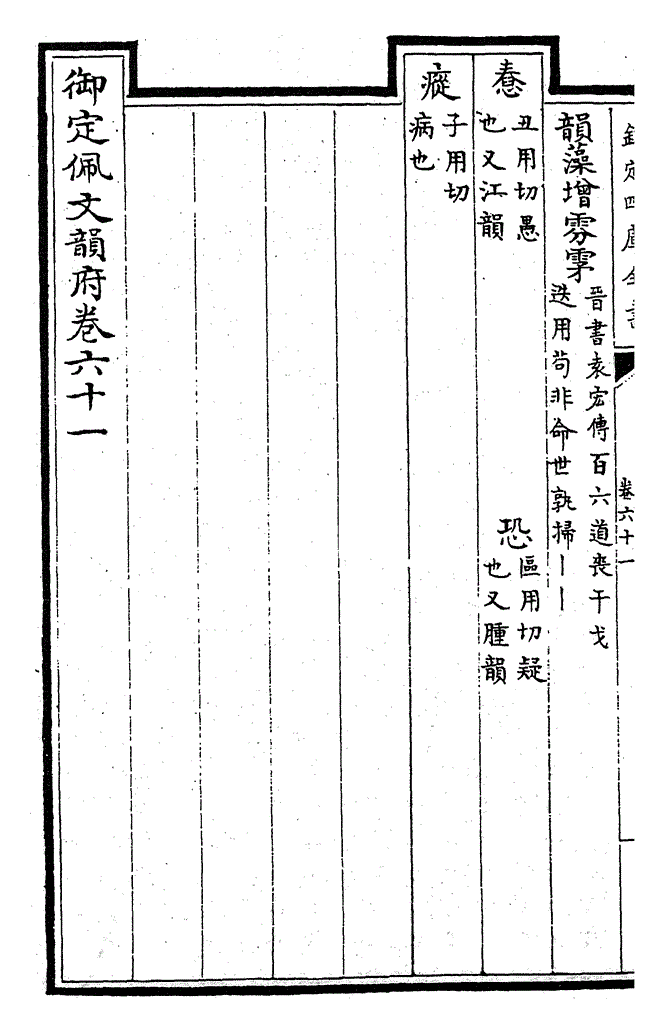 欽定四庫全書
卷六十一
韻藻增雰雺
晉書袁宏傳百六道喪干戈
迭用苟非命世孰掃丨丨
憃
丑用切愚
也又江韻
恐
區用切疑
也又腫韻
瘲
子用切
病也
御定佩文韻府卷六十一